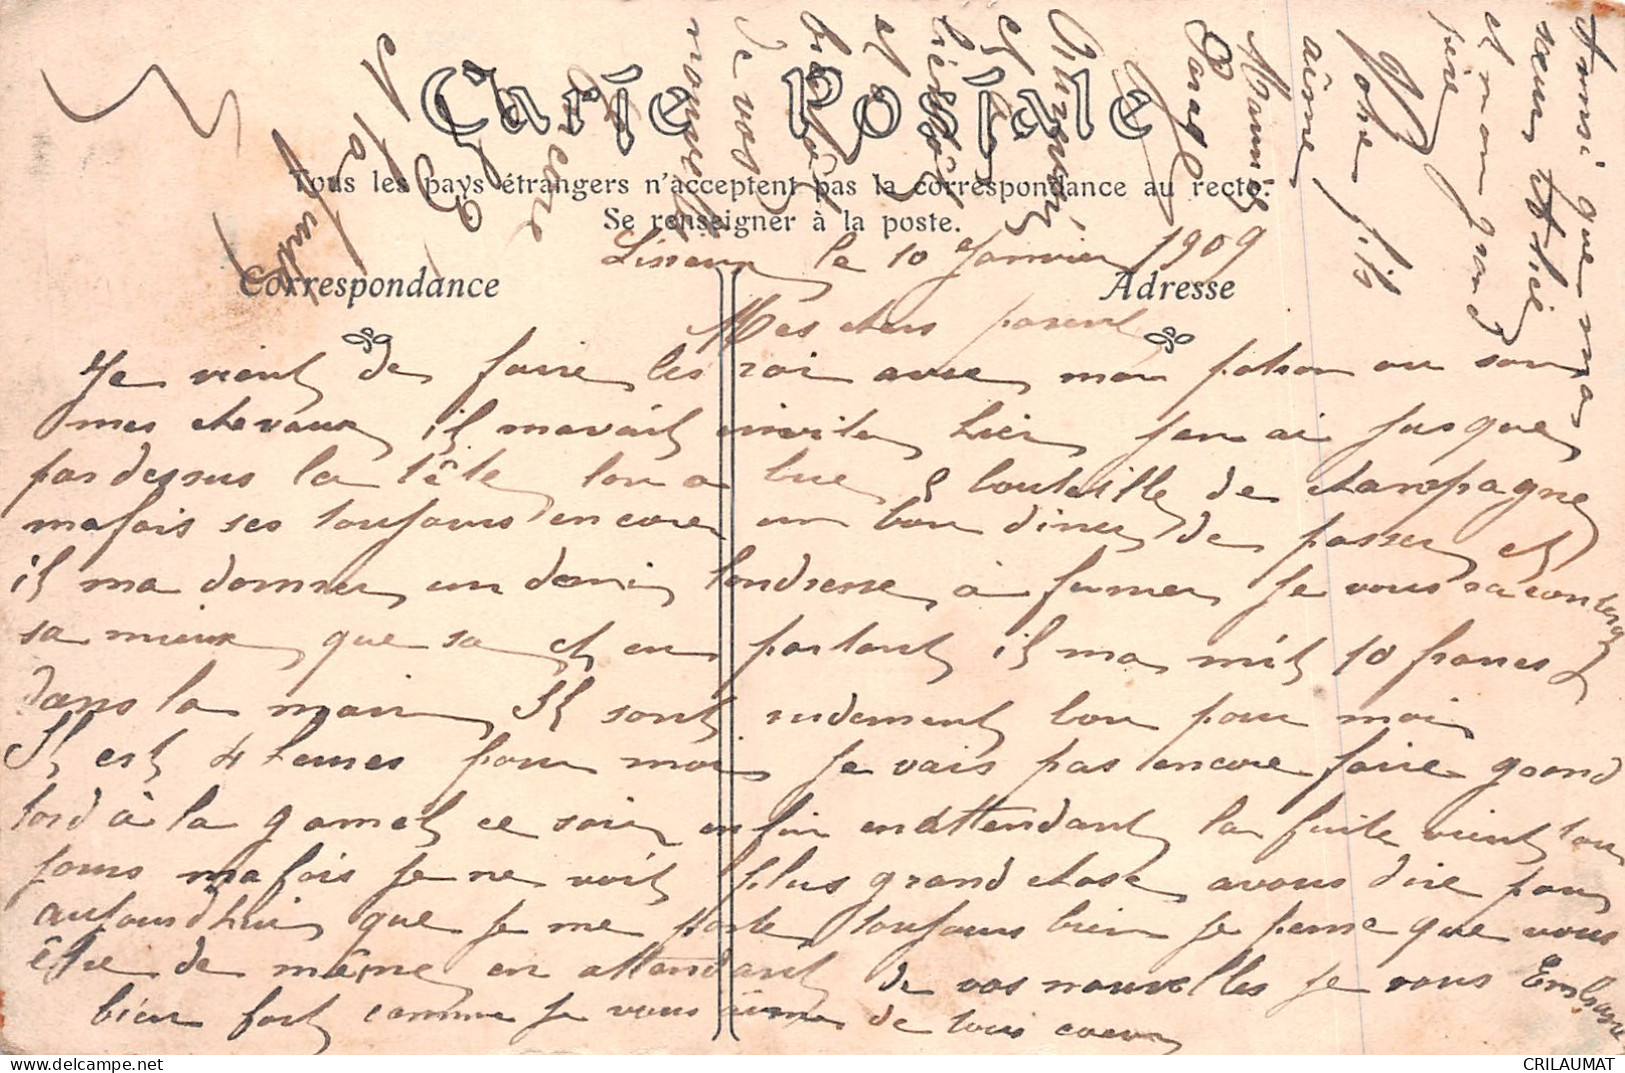 Carte Postale
Tous les pays étrangers n'acceptent pas la correspondance au recto.
Se renseigner à la poste.
Correspondance
Adresse
Lisieux le 10 Janvier 1909
Mes chers parent
Je vient de faire les roi avec mon patron ou son
mes chevaux il mavait invite hier jen ai jusque
par dessus la tête lon a bue 9 bouteille de champagne
mafois ses toujours encore un bon diner de passer et
il ma donner un demi londresse à fumer je vous racontera
sa mieux que sa et en partant il ma mit 10 francs
dans la main Il sont rudement bon pour moi
Il est 4 heures pour moi je vais pas encore faire grand
tord à la gamel ce soir enfin en attendant la fuite vient tou
jours mafois je ne voit plus grand chose avous dire pour
aujourdhui que je me porte toujours bien je pense que vous
être de même en attendant de vos nouvelles je vous Embrasse
bien fort comme je vous aime de tous coeur
Ainsi que ma
seur
et mon grand
père
Votre fils
aime
Maurice
Au revoir
et a
bientôt
et a
bientôt
de vos
nouvelle
encore
CRILAUMAT